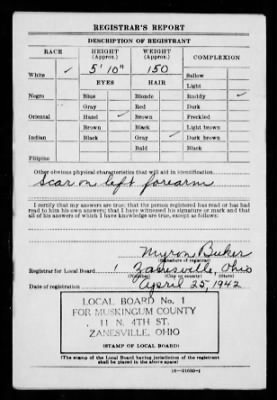 REGISTRAR'S REPORT
DESCRIPTION OF REGISTRANT
RACE HEIGHT (Approx.) WEIGHT (Approx.) COMPLEXION
White ✓ 5' 10" 150 Sallow
EYES HAIR Light
Negro Blue Blonde Ruddy ✓
Gray Red Dark
Oriental Hazel ✓ Brown Freckled
Brown Black Light brown
Indian Black Gray ✓ Dark brown
Bald Black
Filipino
Other obvious physical characteristics that will aid in identification
Scar on left forearm
I certify that my answers are true; that the person registered has read or has
read to him his own answers; that I have witnessed his signature or mark and that
all of his answers of which I have knowledge are true, except as follows:
Myron
(Signature of registrar)
Registrar for Local Board 1 Zanesville, Ohio
(Number) (City or county) (State)
Date of registration April 25, 1942
LOCAL BOARD No. 1
FOR MUSKINGUM COUNTY
11 N. 4TH ST.
ZANESVILLE, OHIO
(STAMP OF LOCAL BOARD)
(The stamp of the Local Board having jurisdiction of the registrant
shall be placed in the above space)